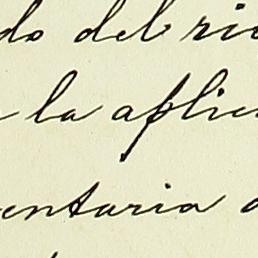 do del ri
la aplic
entaria